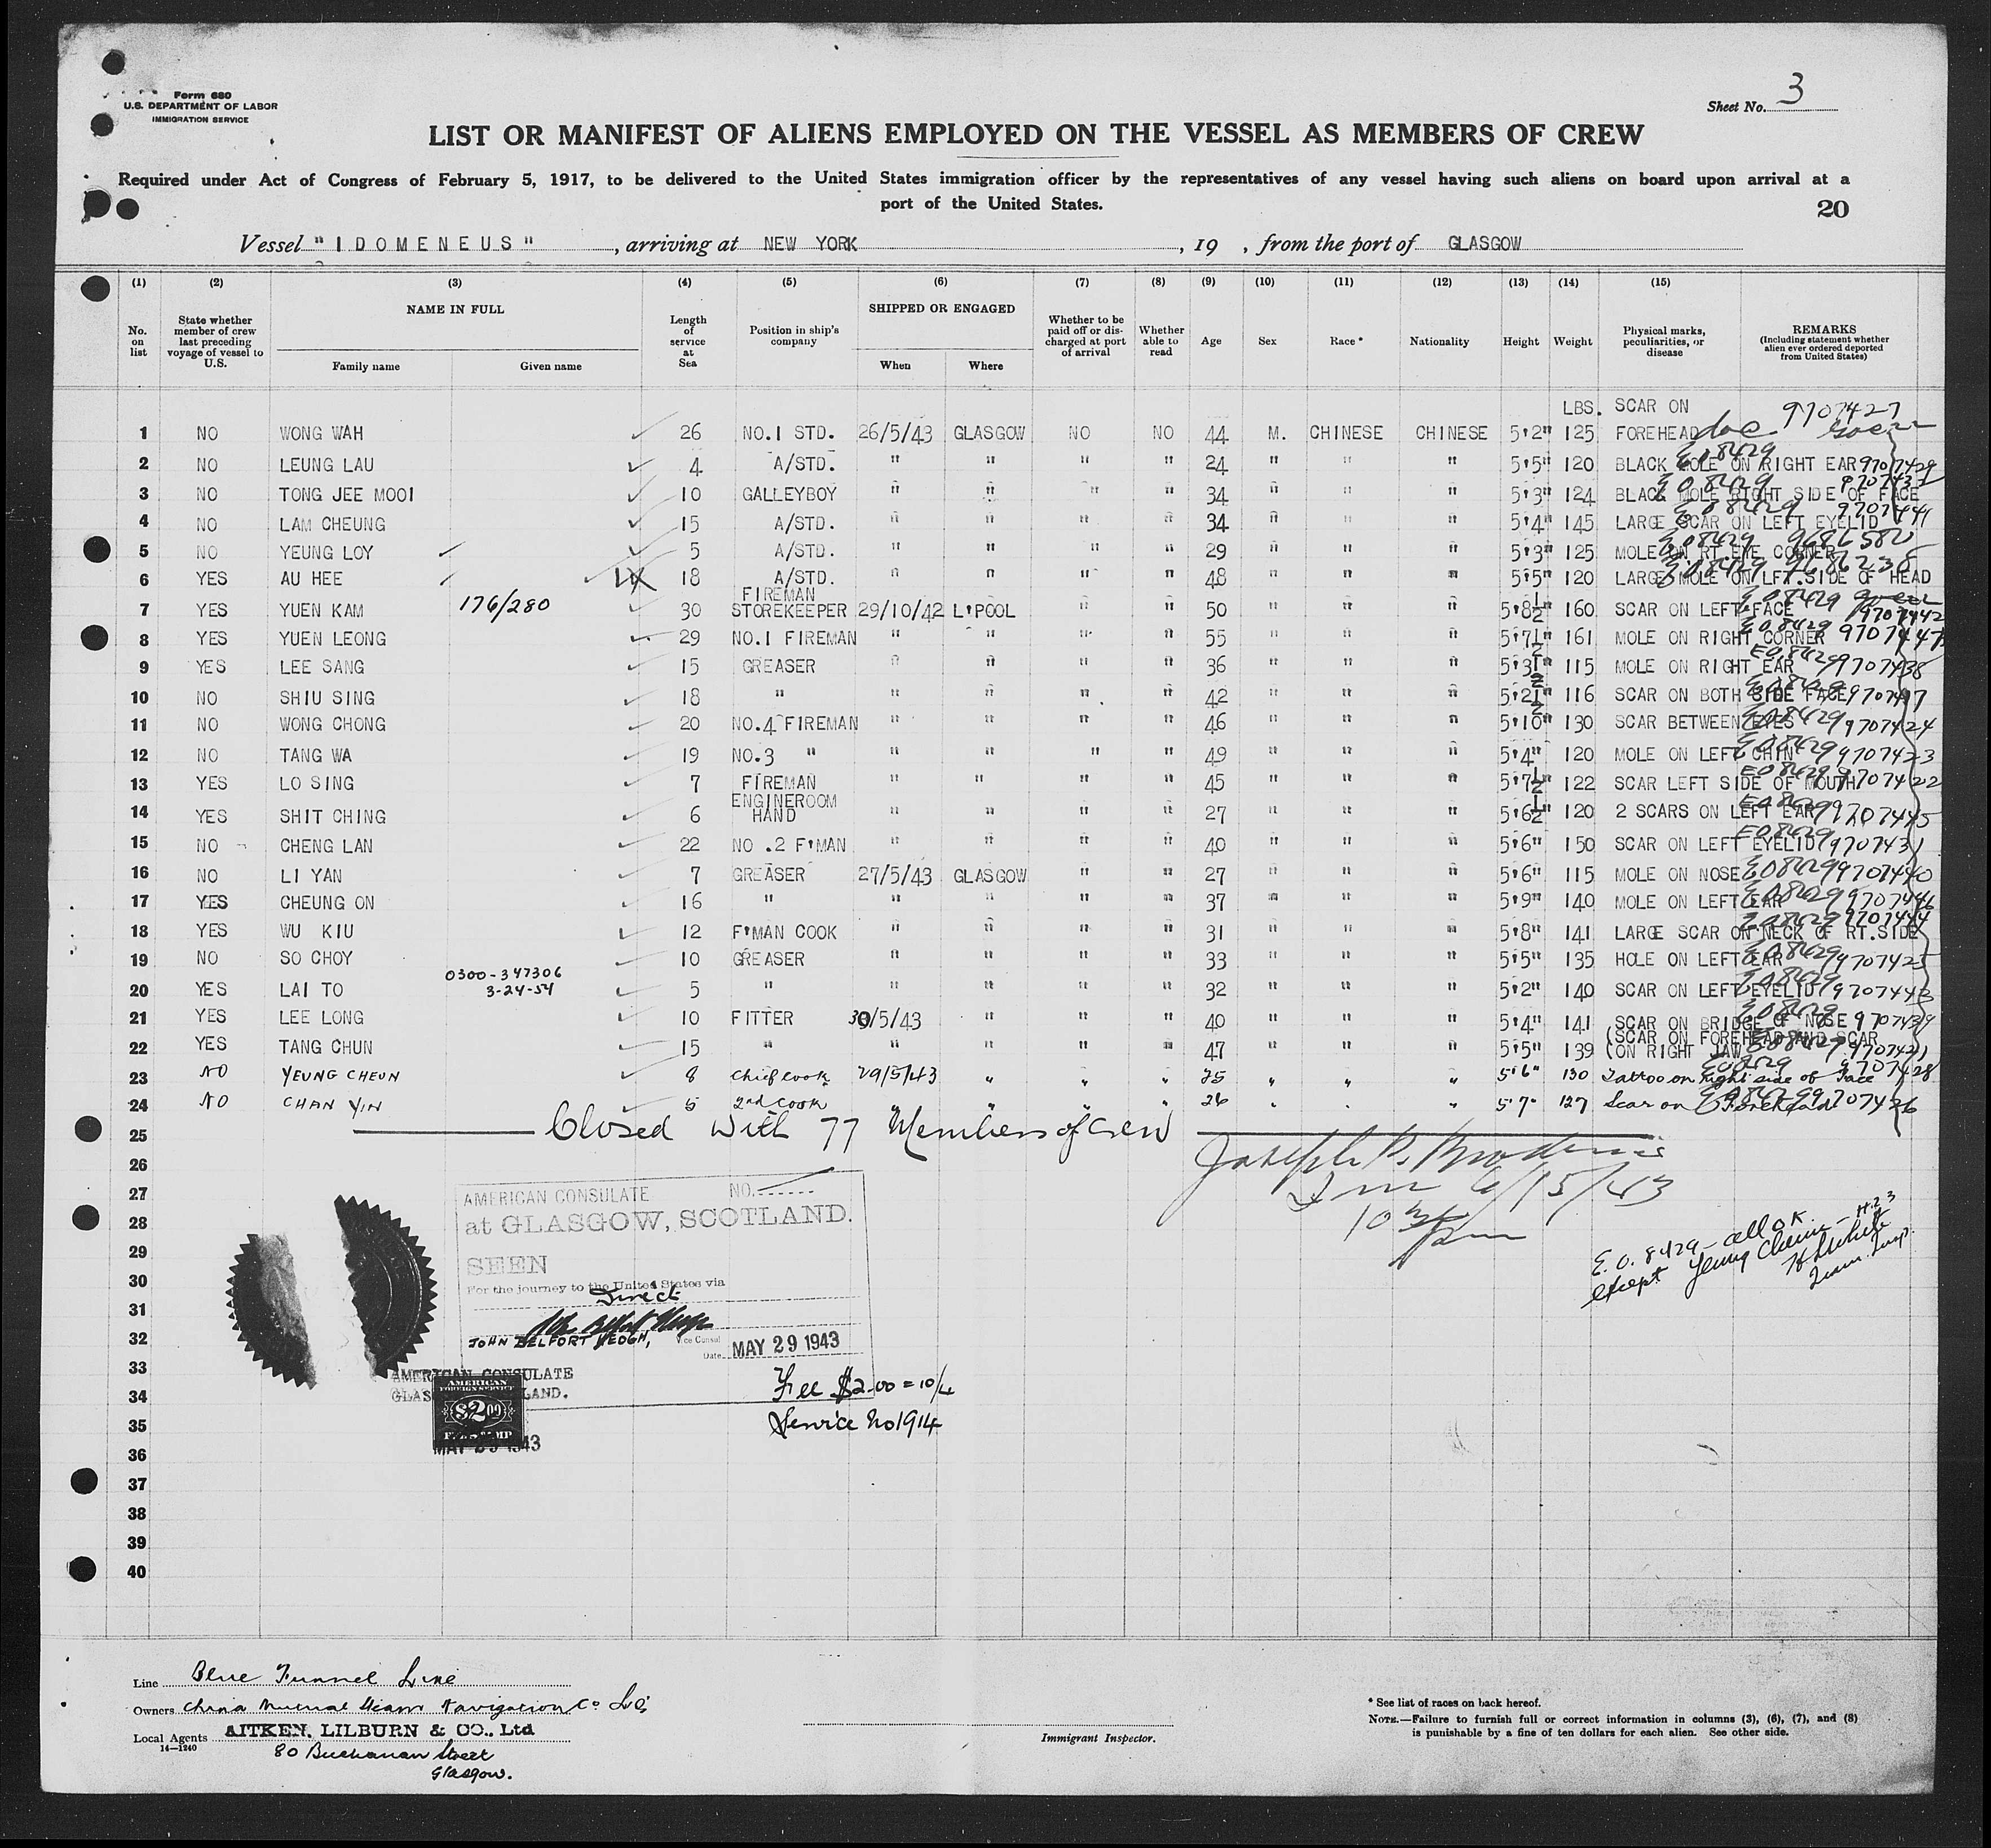 Form 680
U.S. DEPARTMENT OF LABOR
IMMIGRATION SERVICE
Sheet No. 3
LIST OR MANIFEST OF ALIENS EMPLOYED ON THE VESSEL AS MEMBERS OF CREW
Required under Act of Congress of February 5, 1917, to be delivered to the United States immigration officer by the representatives of any vessel having such aliens on board upon arrival at a
port of the United States.
20
Vessel "IDOMENEUS", arriving at NEW YORK, 19 , from the port of GLASGOW
(1) (2) (3) (4) (5) (6) (7) (8) (9) (10) (11) (12) (13) (14) (15)
No. on list
State whether member of crew last preceding voyage of vessel to U.S.
NAME IN FULL
Family name
Given name
Length of service at Sea
Position in ship's company
SHIPPED OR ENGAGED
When
Where
Whether to be paid off or discharged at port of arrival
Whether able to read
Age
Sex
Race *
Nationality
Height
Weight
Physical marks, peculiarities, or disease
REMARKS
(Including statement whether alien ever ordered deported from United States)
LBS. SCAR ON 9707427
1 NO WONG WAH 26 NO.1 STD. 26/5/43 GLASGOW NO NO 44 M. CHINESE CHINESE 5'2" 125 FOREHEAD
2 NO LEUNG LAU 4 A/STD. " " " " 24 " " " 5'5" 120 BLACK MOLE ON RIGHT EAR EO8429 9707429
3 NO TONG JEE MOOI 10 GALLEYBOY " " " " 34 " " " 5'3" 124 BLACK MOLE RIGHT SIDE OF FACE EO8429
4 NO LAM CHEUNG 15 A/STD. " " " " 34 " " " 5'4" 145 LARGE SCAR ON LEFT EYELID EO8429 9707441
5 NO YEUNG LOY 5 A/STD. " " " " 29 " " " 5'3" 125 MOLE ON RT EYE CORNER EO8429
6 YES AU HEE 18 A/STD. " " " " 48 " " " 5'5" 120 LARGE MOLE ON LFT.SIDE OF HEAD EO8429
7 YES YUEN KAM 176/280 30 FIREMAN STOREKEEPER 29/10/42 L'POOL " " 50 " " " 5'8½" 160 SCAR ON LEFT FACE EO8429 9707442
8 YES YUEN LEONG 29 NO.1 FIREMAN " " " " 55 " " " 5'7½" 161 MOLE ON RIGHT CORNER EO8429 9707447
9 YES LEE SANG 15 GREASER " " " " 36 " " " 5'3½" 115 MOLE ON RIGHT EAR EO8429 9707438
10 NO SHIU SING 18 " " " " " 42 " " " 5'2½" 116 SCAR ON BOTH SIDE FACE EO8429
11 NO WONG CHONG 20 NO.4 FIREMAN " " " " 46 " " " 5'10" 130 SCAR BETWEEN EYES EO8429 9707424
12 NO TANG WA 19 NO.3 " " " " " 49 " " " 5'4" 120 MOLE ON LEFT CHIN EO8429 9707423
13 YES LO SING 7 FIREMAN " " " " 45 " " " 5'7½" 122 SCAR LEFT SIDE OF MOUTH EO8429 9707422
14 YES SHIT CHING 6 ENGINEROOM HAND " " " " 27 " " " 5'6½" 120 2 SCARS ON LEFT EAR EO8429 9707445
15 NO CHENG LAN 22 NO .2 F'MAN " " " " 40 " " " 5'6" 150 SCAR ON LEFT EYELID EO8429 9707431
16 NO LI YAN 7 GREASER 27/5/43 GLASGOW " " 27 " " " 5'6" 115 MOLE ON NOSE EO8429 9707440
17 YES CHEUNG ON 16 " " " " " 37 " " " 5'9" 140 MOLE ON LEFT EAR EO8429 9707446
18 YES WU KIU 12 F'MAN COOK " " " " 31 " " " 5'8" 141 LARGE SCAR ON NECK OF RT.SIDE EO8429 9707444
19 NO SO CHOY 10 GREASER " " " " 33 " " " 5'5" 135 HOLE ON LEFT EAR EO8429 9707425
20 YES LAI TO 0300-347306 3-24-54 5 " " " " " 32 " " " 5'2" 140 SCAR ON LEFT EYELID EO8429 9707443
21 YES LEE LONG 10 FITTER 30/5/43 " " " 40 " " " 5'4" 141 SCAR ON BRIDGE OF NOSE EO8429 9707439
22 YES TANG CHUN 15 " " " " " 47 " " " 5'5" 139 (SCAR ON FOREHEAD AND SCAR (ON RIGHT JAW EO8429 9707421
23 NO YEUNG CHEUN 8 Chief Cook 29/5/43 " " " 25 " " " 5'6" 130 Tattoo on right side of Face EO8429 9707428
24 NO CHAN YIN 5 2nd Cook " " " " 26 " " " 5'7" 127 Scar on Forehead 9707426
25 Closed with 77 Members of Crew
26
27
28
29
30
31
32
33
34
35
36
37
38
39
40
6/15/43
E.O. 8429 – all OK
except Yeung Cheun – #23
AMERICAN CONSULATE NO.
at GLASGOW, SCOTLAND.
SEEN
For the journey to the United States via
Direct
JOHN BELFORT KEOGH, Vice Consul
Date MAY 29 1943
AMERICAN CONSULATE
GLASGOW, SCOTLAND.
AMERICAN
FOREIGN SERVICE
$2.00
FEE STAMP
MAY 29 1943
Fee $2.00 = 10/4
Service No 1914
Line Blue Funnel Line
Owners China Mutual Steam Navigation Co Ld.
Local Agents AITKEN, LILBURN & CO., Ltd
14—1240
80 Buchanan Street
Glasgow.
Immigrant Inspector.
* See list of races on back hereof.
NOTE.—Failure to furnish full or correct information in columns (3), (6), (7), and (8)
is punishable by a fine of ten dollars for each alien. See other side.